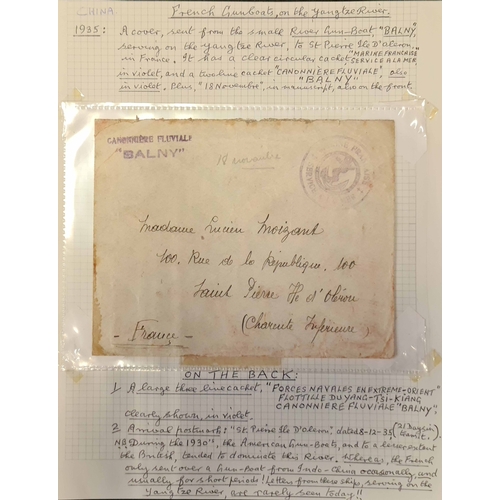 CHINA
French Gunboats, on the Yangtze River.
1935: A cover, sent from the small River Gun-Boat, "BALNY",
serving on the Yangtze River, to St Pierre Ile D'oleron,
in France. It has a clear circular cachet "MARINE FRANCAISE
SERVICE A LA MER"
in violet, and a two line cachet "CANONNIÈRE FLUVIALE" also
"BALNY"
in violet. Plus, "18 Novembre", in manuscript, also on the front
CANONNIÈRE FLUVIALE
"BALNY"
18 novembre
Madame Lucien Moizant
100, Rue de la République, 100
Saint Pierre Ile d'Oléron
(Charente Inférieure)
- France -
ON THE BACK:
1. A large three line cachet, "FORCES NAVALES EN EXTREME-ORIENT
FLOTTILLE DU YANG-TSI-KIANG
CANONNIÈRE FLUVIALE "BALNY",
clearly shown in violet.
2 Arrival postmark: "St. Pierre Ile D'oleron", dated 8-12-35 (21 Days in
transit.
NB During the 1930's, the American Gun-Boats, and to a less extent
the British, tended to dominate this River, whereas, the French
only sent over a Gun-Boat from Indo-China occasionally, and
usually for short periods! Letters from these ships, serving on the
Yangtze River, are rarely seen today!!